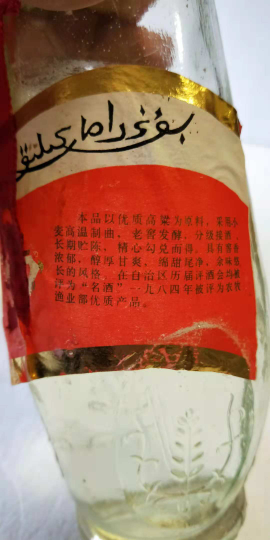 本品以优质高粱为原料，采用小
麦高温制曲，老窖发酵，分级接酒，
长期贮陈，精心勾兑而得，具有窖香
浓郁，醇厚甘爽，绵甜尾净，余味悠
长的风格，在自治区历届评酒会均被
评为“名酒”一九八四年被评为农牧
渔业部优质产品。